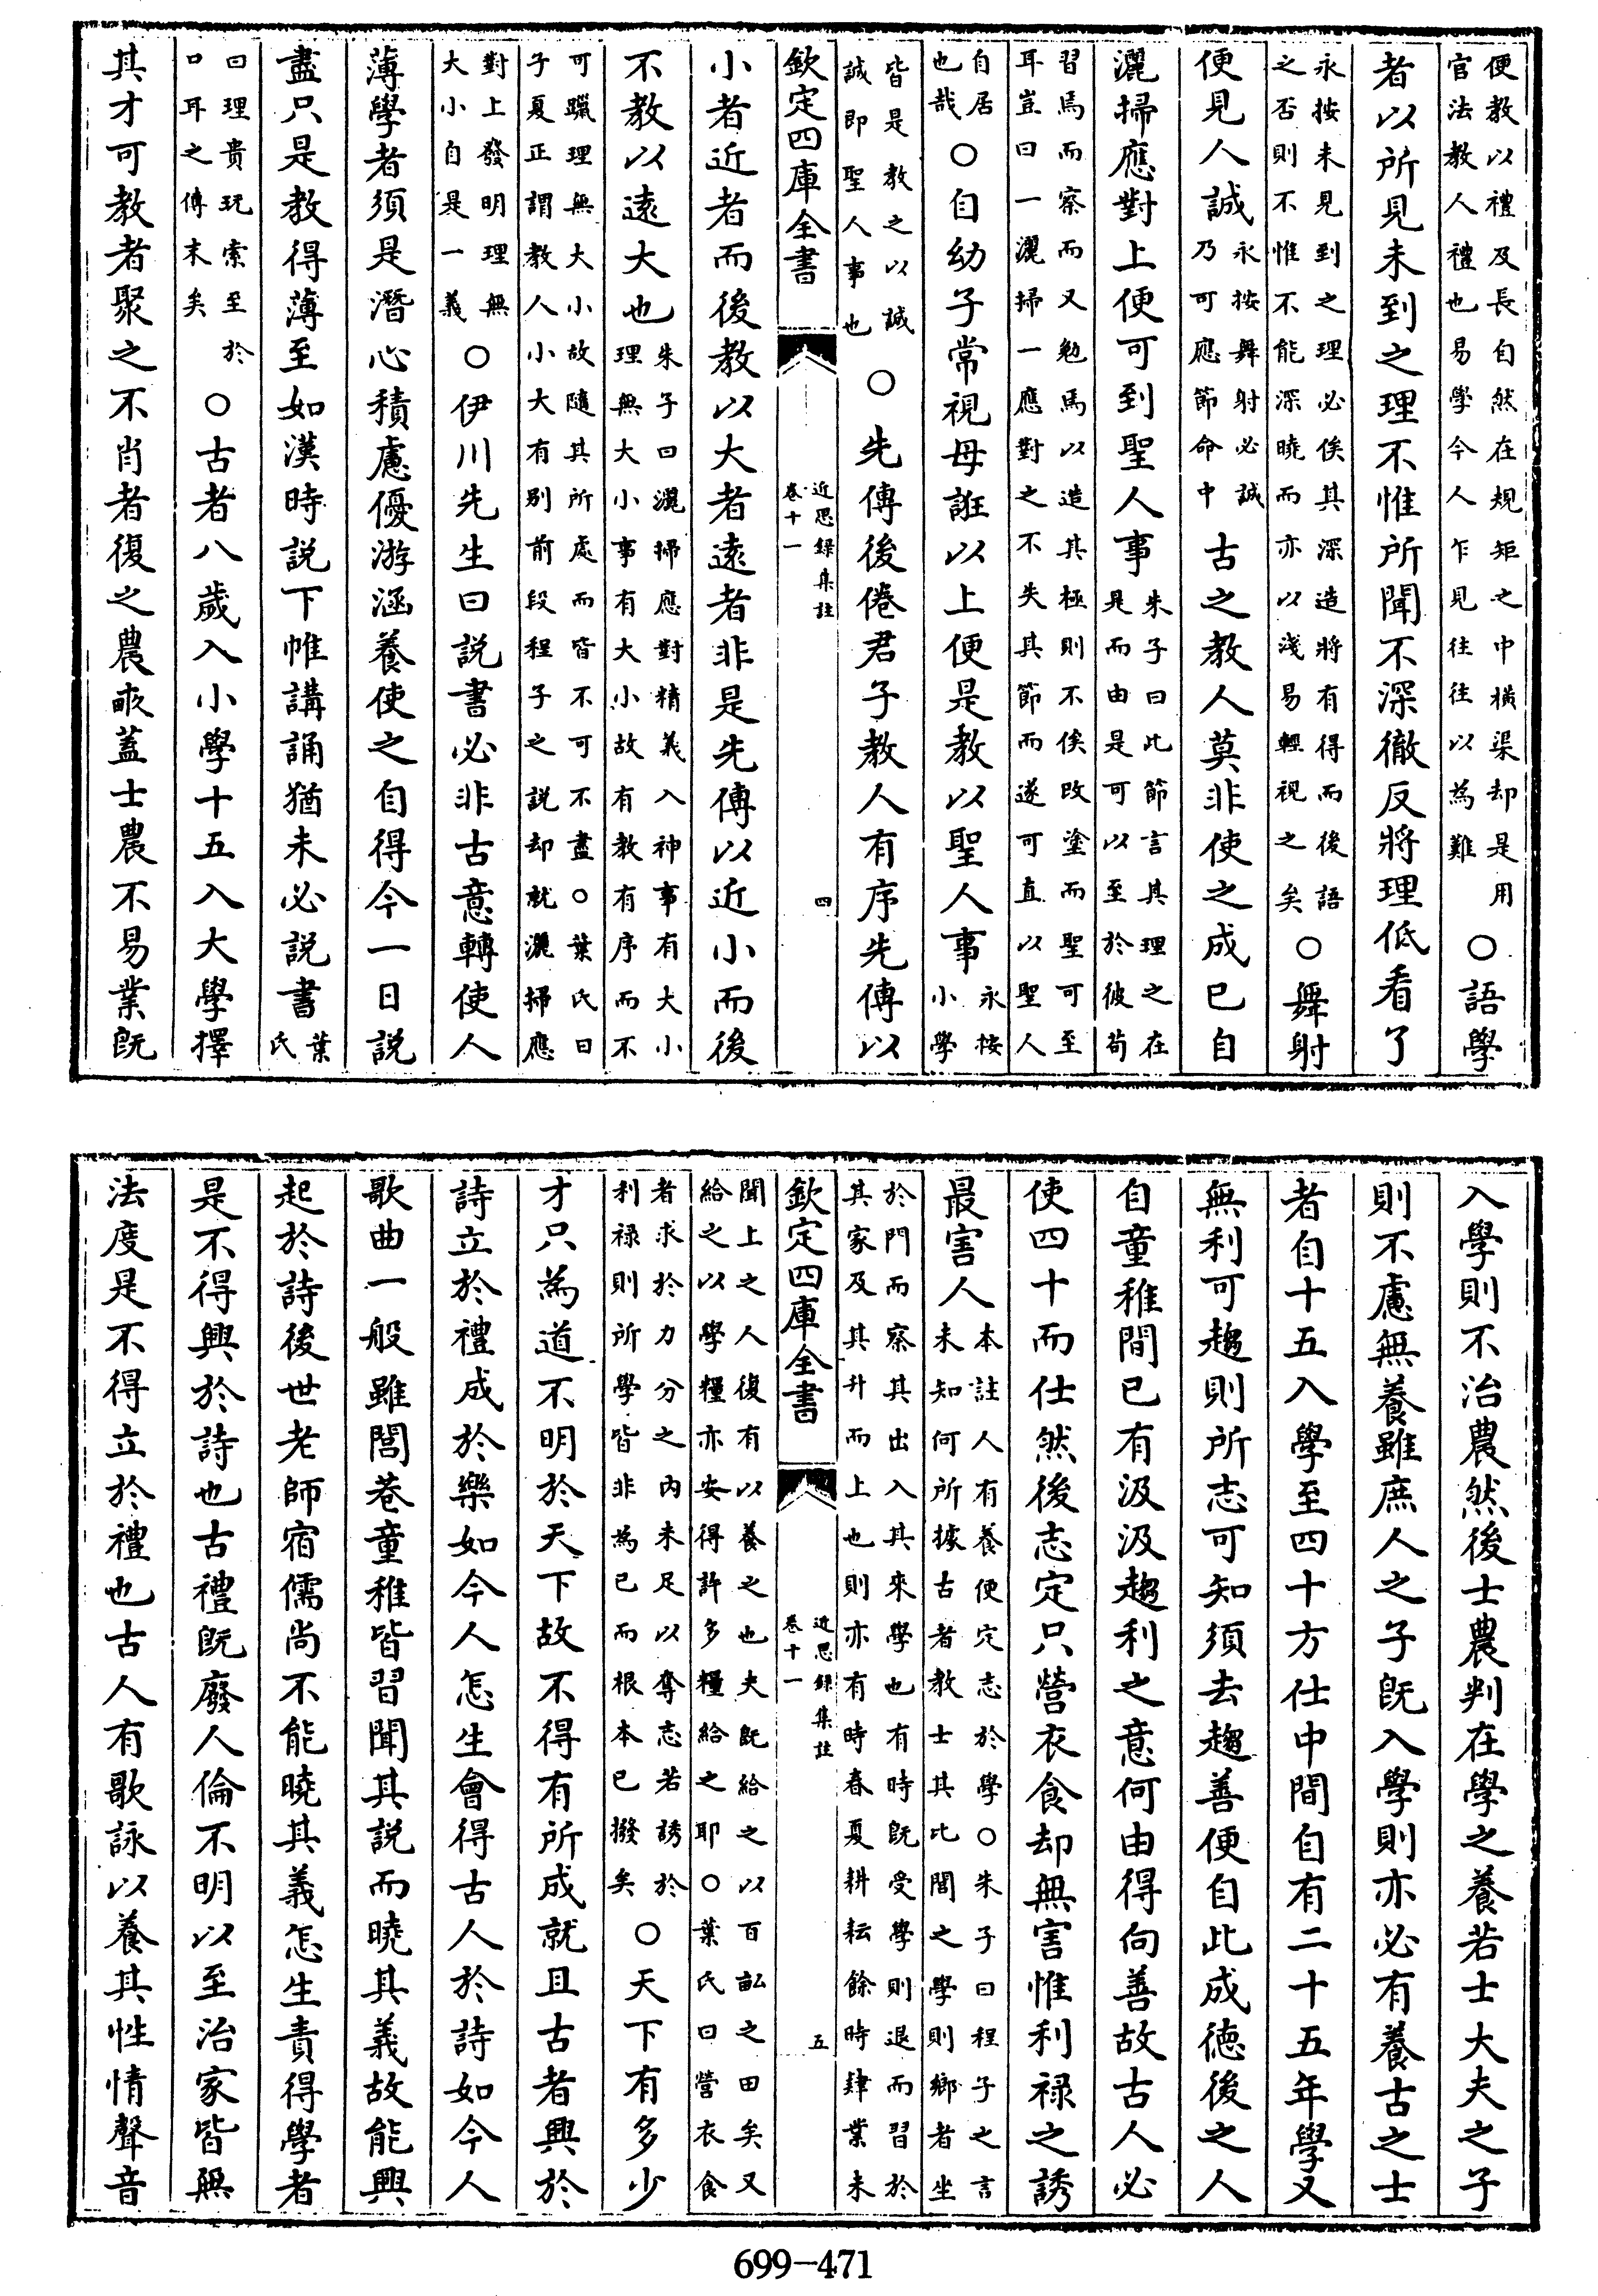 便教以禮及長自然在規矩之中橫渠却是用
官法教人禮也易學今人乍見往往以為難
○語學
者以所見未到之理不惟所聞不深徹反將理低看了
永按未見到之理必俟其深造將有得而後語
之否則不惟不能深曉而亦以淺易輕視之矣
○舞射
便見人誠
永按舞射必誠
乃可應節命中
古之教人莫非使之成已自
灑掃應對上便可到聖人事
朱子曰此節言其理之在
是而由是可以至於彼苟
習焉而察而又勉焉以造其極則不俟改塗而聖可至
耳豈曰一灑掃一應對之不失其節而遂可直以聖人
自居
也哉
○自幼子常視母誑以上便是教以聖人事
永按
小學
皆是教之以誠
誠即聖人事也
○先傳後倦君子教人有序先傳以
欽定四庫全書
近思録集註
卷十一
四
小者近者而後教以大者遠者非是先傳以近小而後
不教以遠大也
朱子曰灑掃應對精義入神事有大小
理無大小事有大小故有教有序而不
可躐理無大小故隨其所處而皆不可不盡○葉氏曰
子夏正謂教人小大有别前段程子之説却就灑掃應
對上發明理無
大小自是一義
○伊川先生曰説書必非古意轉使人
薄學者須是潛心積慮優游涵養使之自得今一日説
盡只是教得薄至如漢時説下帷講誦猶未必説書
葉
氏
曰理貴玩索至於
口耳之傳末矣
○古者八歲入小學十五入大學擇
其才可教者聚之不肖者復之農畝蓋士農不易業旣
入學則不治農然後士農判在學之養若士大夫之子
則不慮無養雖庶人之子旣入學則亦必有養古之士
者自十五入學至四十方仕中間自有二十五年學又
無利可趨則所志可知須去趨善便自此成德後之人
自童稚間已有汲汲趨利之意何由得向善故古人必
使四十而仕然後志定只營衣食却無害惟利祿之誘
最害人
本註人有養便定志於學○朱子曰程子之言
未知何所據古者教士其比閭之學則鄉者坐
於門而察其出入其來學也有時旣受學則退而習於
其家及其升而上也則亦有時春夏耕耘餘時肄業未
欽定四庫全書
近思録集註
卷十一
五
聞上之人復有以養之也夫旣給之以百畝之田矣又
給之以學糧亦安得許多糧給之耶○葉氏曰營衣食
者求於力分之内未足以奪志若誘於
利祿則所學皆非為已而根本已撥矣
○天下有多少
才只為道不明於天下故不得有所成就且古者興於
詩立於禮成於樂如今人怎生會得古人於詩如今人
歌曲一般雖閭巷童稚皆習聞其説而曉其義故能興
起於詩後世老師宿儒尚不能曉其義怎生責得學者
是不得興於詩也古禮旣廢人倫不明以至治家皆無
法度是不得立於禮也古人有歌詠以養其性情聲音
699-471